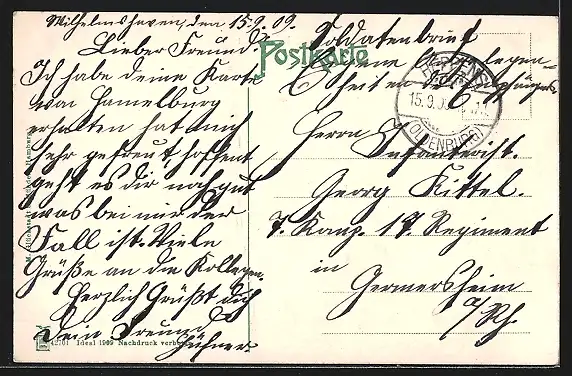 Wilhelmshaven, den 15.9.09.
Lieber Freund!
Ich habe deine Karte
von Hamelburg
erhalten hat mich
sehr gefreut hoffent
geht es dir noch gut
was bei mir der
Fall ist. Viele
Grüße an die Kollegen.
Herzlich Grüßt dich
Dein Freund
Hüfner
Postkarte
Soldatenbrief
Eigene Angelegen-
heiten d. Empfängers
Herrn
Infanterist.
Georg Kittel.
7. Komp. 17. Regiment
in
Germersheim
a/Rh.
15.9.09
(OLDENBURG)
42701 Ideal 1909 Nachdruck verboten